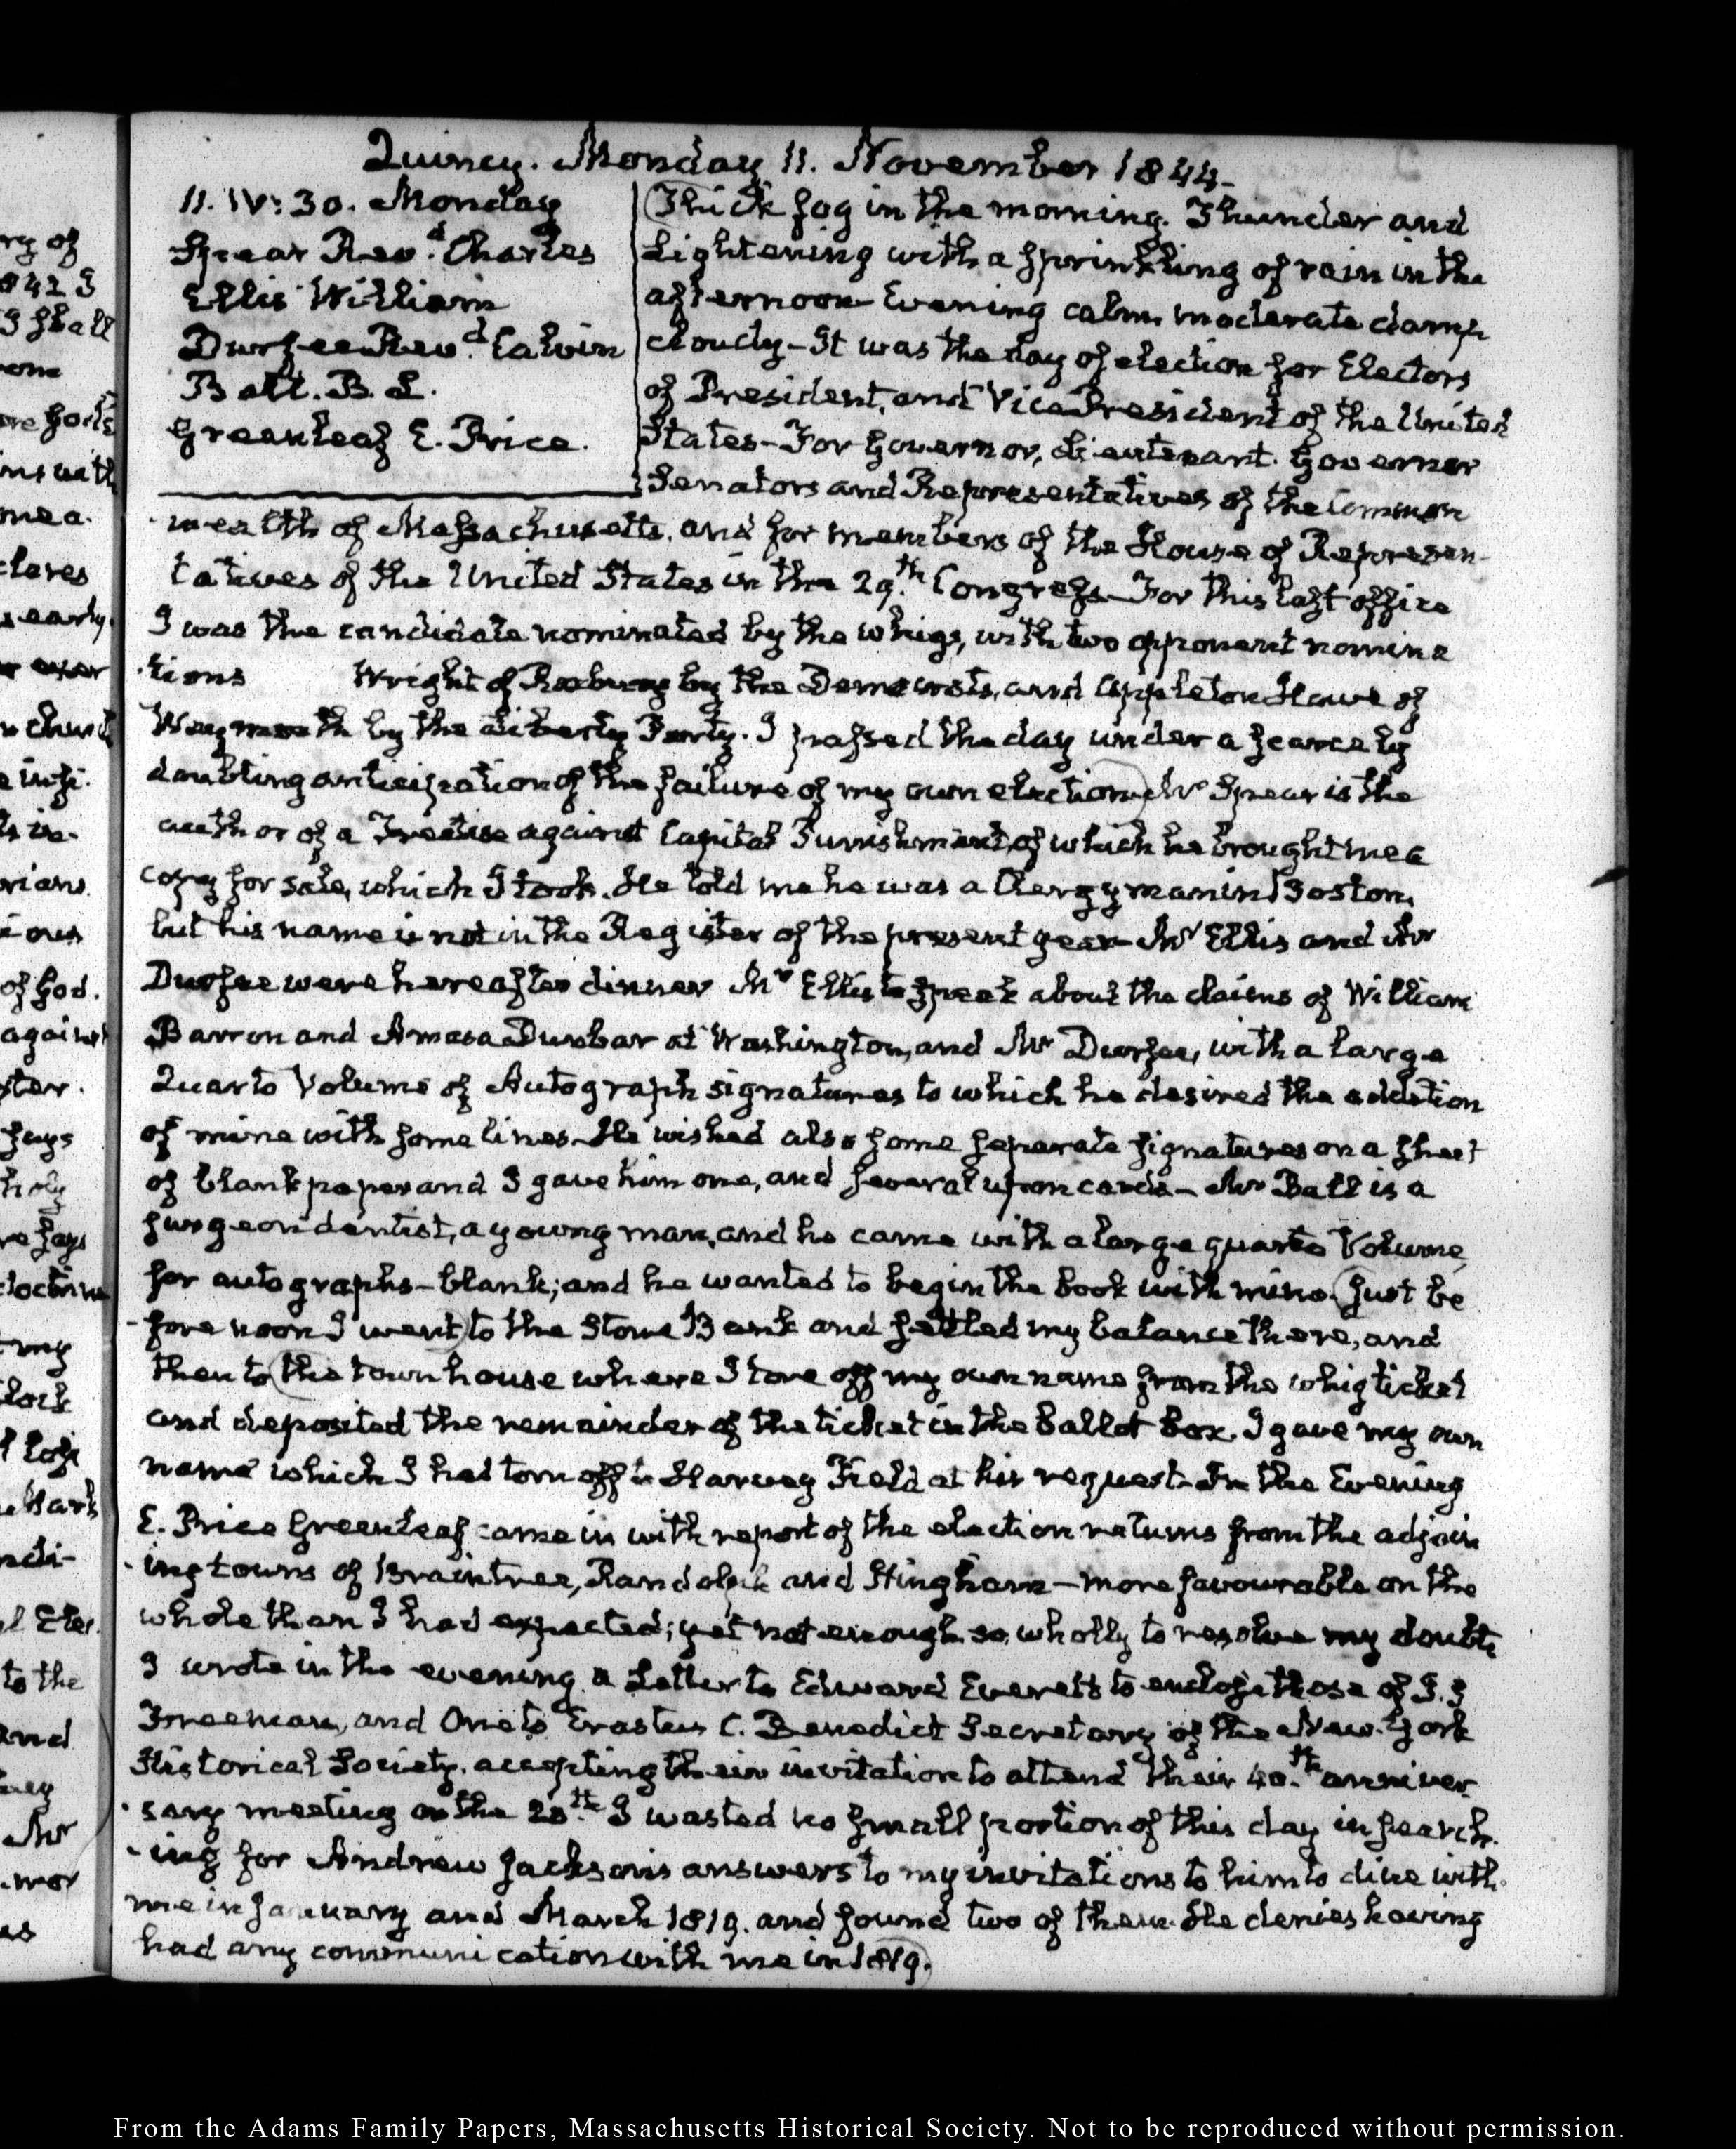 Quincy. Monday 11. November 1844.
11. IV: 30. Monday
Spear Rev.d Charles
Ellis William
Durfee Rev.d Calvin
Ball. B. L.
Greenleaf E. Price.
Thick fog in the morning. Thunder and
Lightening with a sprinkling of rain in the
afternoon Evening calm, moderate damp
cloudy—It was the day of election for Electors
of President, and Vice President of the United
States—For Governor, Lieutenant Governor
Senators and Representatives of the Common
wealth of Massachusetts, and for members of the House of Represen-
tatives of the United States in the 29.th Congress—For this last office
I was the candidate nominated by the whigs, with two opponent nomina
-tions Wright of Roxbury by the Democrats, and Appleton Howe of
Weymouth by the Liberty Party. I passed the day under a scarcely
doubting anticipation of the failure of my own election—Mr Spear is the
author of a Treatise against Capital Punishment, of which he brought me a
copy for sale, which I took. He told me he was a Clergyman in Boston,
but his name is not in the Register of the present year—Mr Ellis and Mr
Durfee were here after dinner Mr Ellis to speak about the claims of William
Barron and Amasa Dunbar at Washington, and Mr Durfee, with a large
Quarto Volume of Autograph signatures to which he desired the addition
of mine with some lines—He wished also some separate signatures on a sheet
of blank paper and I gave him one, and several upon cards—Mr Ball is a
surgeon dentist, a young man, and he came with a large quarto Volume,
for autographs—blank; and he wanted to begin the book with mine. Just be
-fore noon I went to the Stone Bank and settled my balance there, and
then to the town house where I tore off my own name from the whig ticket
and deposited the remainder of the ticket in the Ballot box. I gave my own
name which I had torn off to Harvey Field at his request—In the Evening
E. Price Greenleaf came in with report of the election returns from the adjoin
-ing towns of Braintree, Randolph and Hingham—more favourable on the
whole than I had expected; yet not enough so, wholly to resolve my doubts
I wrote in the evening a Letter to Edward Everett to enclose those of
Freeman, and One to Erastus C. Benedict Secretary of the New-York
Historical Society, accepting their invitation to attend their 40.th anniver-
-sary meeting on the 20th. I wasted no small portion of this day in search-
-ing for Andrew Jackson's answers to my invitations to him to dine with
me in January and March 1819. and found two of them. He denies having
had any communication with me in 1819.
From the Adams Family Papers, Massachusetts Historical Society. Not to be reproduced without permission.